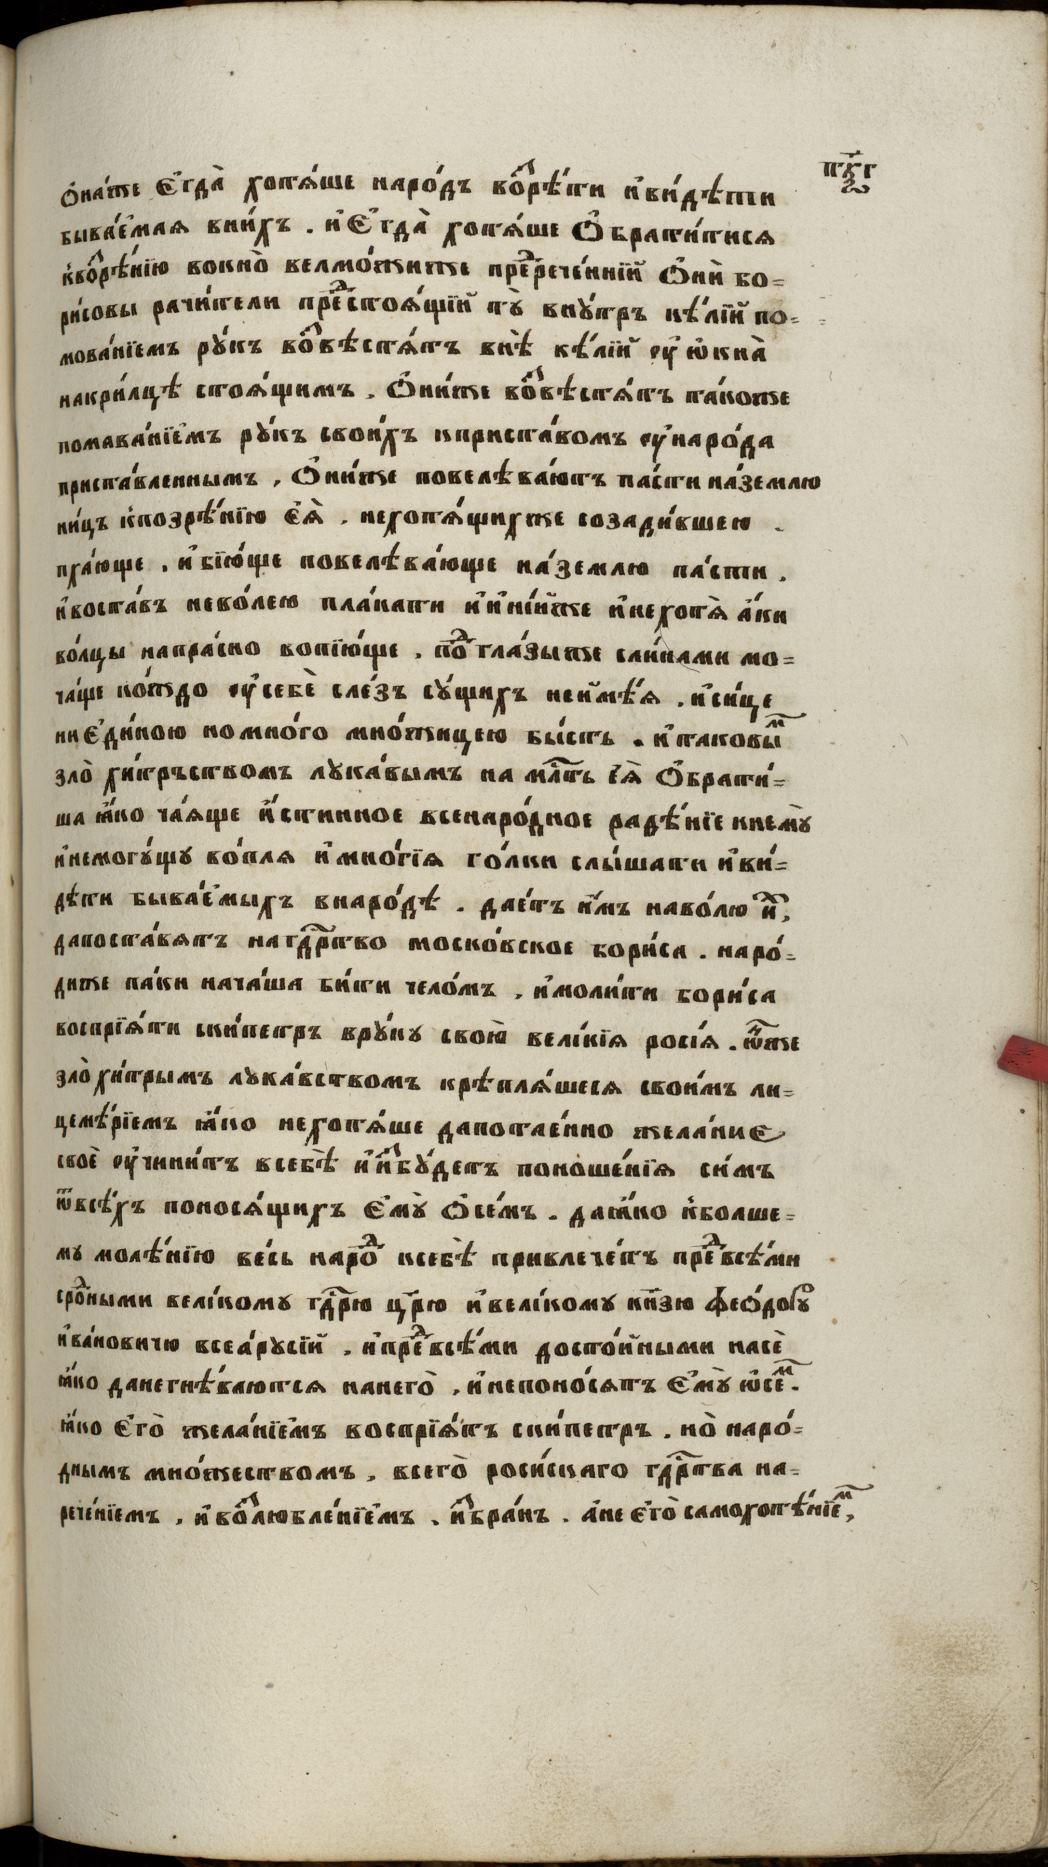 пк҃г
ѿ
ѻ҆на́же є҆гда̀ хотѧ́ше наро́дъ воз̾рѣ́ти и҆ви́дѣти
быва́емаѧ вни́хъ . и҆ є҆гда̀ хотѧ́ше ѻ҆братитисѧ
к̾воз̾рѣ́нїю вокно̀ велмо́жиже пред̾рече́ннїи ѻ҆нѝ бо=
ри́совы рачи́тели пред̾стоѧ́щїи тꙋ̀ внꙋ́трь кѣ́лїи по=
мова́нїемъ рꙋ́къ воз̾вѣстѧ́тъ внѣ̀ кѣ́лїи оу҆ ѡ҆кна̀
накри́лцѣ стоѧ́щимъ . ѻ҆ни́же воз̾вѣстѧ́тъ та́коже
помава́нїемъ рꙋ́къ свои́хъ кприста́вомъ оу҆наро́да
приста́вленнымъ , ѻ҆ни́же повелѣва́ютъ па́сти на́землю
ни́цъ к̾позрѣ́нїю є҆ѧ̀ . нехотѧ́щихже созади́вшею .
пха́юще . и҆ бїю́ще повелѣва́юще на́землю па́сти .
и҆воста́въ нево́лею пла́кати и҆ и҆ні́иже и҆нехотѧ̀ а҆́ки
во́лцы напра́сно вопїю́ще . под̾ гла́зыже сли́нами мо=
ча́ще ко́ждо оу҆себѐ сле́зъ сꙋ́щихъ неи҆мѣ́ѧ . и҆си́це
ни є҆ди́ною но мно́го мно́жицею бы́сть . и҆ таковы́м
зло̀ хи́тръствомъ лꙋка́вымъ на ми́лть є҆ѧ̀ ѻ҆брати́=
ша ꙗ҆́ко ча́ѧще и҆́стинное всенаро́дное радѣ́нїе кнемꙋ̀
и҆немогꙋ́щꙋ во́плѧ и҆ мно́гїѧ го́лки слы́шати и҆ви́=
дѣти быва́емыхъ внаро́дѣ . дае́тъ и҆́мъ наво́лю и҆́х,
дапоста́вѧтъ нагдр҃тво моско́вское бори́са . наро́=
диже па́ки нача́ша би́ти чело́мъ , и҆моли́ти бори́са
воспрїѧ́ти ски́петръ врꙋ́кꙋ свою̀ вели́кїѧ росі́ѧ . ѡ҆́нже
зло̀ хи́трымъ лꙋка́вствомъ крѣплѧ́шесѧ свои́мъ ли=
цемѣ́рїемъ ꙗ҆́ко нехотѧ́ше дапотае́нно жела́ние
своѐ оу҆чини́тъ всебѣ̀ и҆ из̾бꙋ́детъ поноше́нїѧ си́мъ
ѿвсѣ́хъ поносѧ́щихъ є҆мꙋ̀ ѻ҆се́мъ . даꙗ҆́ко к̾болше=
мꙋ молѣ́нїю ве́сь наро́д ксебѣ̀ привлече́тъ пред̾ всѣ́ми
сро́дными вели́комꙋ гдр҃ю цр҃ю и҆вели́комꙋ кн҃зю ѳео́дорꙋ
и҆ва́новичю всеа́рꙋсїи . и҆пред̾ всѣ́ми досто́йными насѐ
ꙗ҆́ко данегнѣ́ваютсѧ нанего̀ . и҆непоно́сѧтъ є҆мꙋ̀ ѡ҆се́м .
ꙗ҆́ко є҆го̀ жела́нїемъ воспрїѧ́тъ ски́петръ . но̀ наро́=
днымъ мно́жествомъ . всего̀ росі́скаго гдр҃тва на=
рече́нїемъ . и҆ воз̾любле́нїемъ . из̾бра́нъ . а҆́не є҆го̀ самохотѣ́нїем,